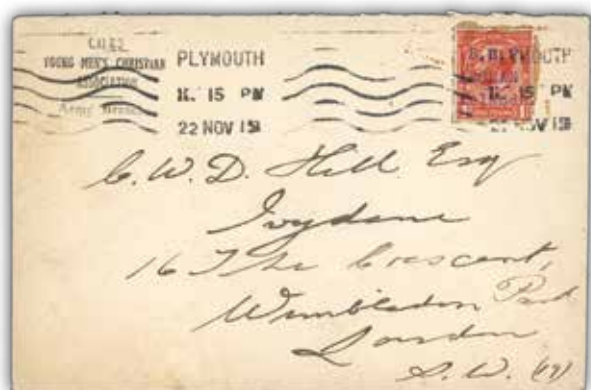 YOUNG MEN'S CHRISTIAN
ASSOCIATION
Army Branch
PLYMOUTH
15 PM
22 NOV 15
PLYMOUTH
15 PM
NOV 15
C. W. D. Hill Esq
Ivydene
16 The Crescent,
Wimbledon Park
London
S. W. (19)